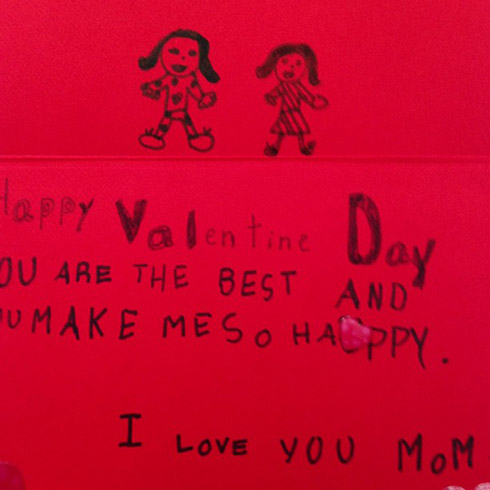 Happy Valentine Day
YOU ARE THE BEST AND
YOU MAKE ME SO HAPPY.
I LOVE YOU MOM